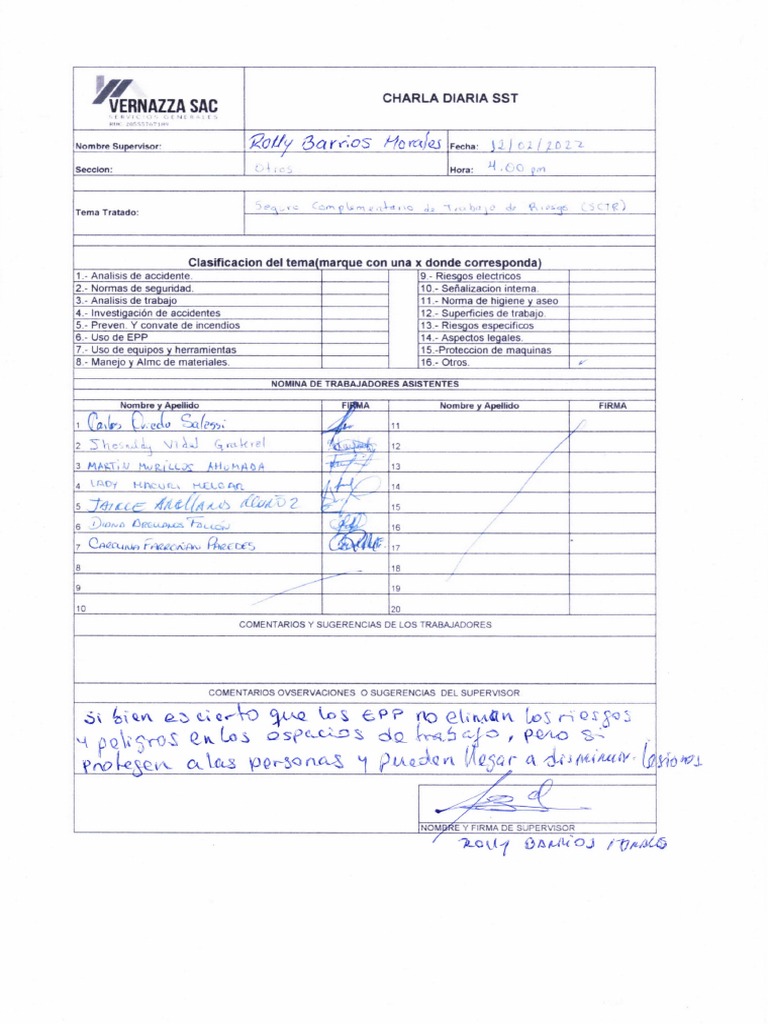 VERNAZZA SAC
SERVICIOS GENERALES
CHARLA DIARIA SST
Nombre Supervisor: Rolly Barrios Morales Fecha: 12/02/2022
Seccion: Otros Hora: 4.00 pm
Tema Tratado: Seguro Complementario de Trabajo de Riesgo (SCTR)
Clasificacion del tema(marque con una x donde corresponda)
1.- Analisis de accidente. 9.- Riesgos electricos
2.- Normas de seguridad. 10.- Señalizacion interna.
3.- Analisis de trabajo 11.- Norma de higiene y aseo
4.- Investigación de accidentes 12.- Superficies de trabajo.
5.- Preven. Y convate de incendios 13.- Riesgos especificos
6.- Uso de EPP 14.- Aspectos legales.
7.- Uso de equipos y herramientas 15.-Proteccion de maquinas
8.- Manejo y Almc de materiales. 16.- Otros. ✓
NOMINA DE TRABAJADORES ASISTENTES
Nombre y Apellido FIRMA Nombre y Apellido FIRMA
1 Carlos Oviedo 11
2 Vidal 12
3 MARTIN MURILLOS AHUMADA 13
4 LADY MACURI MELGAR 14
5 ARELLANO 15
6 DIANA ARELLANOS 16
7 CAROLINA FARROÑAN PAREDES 17
8 18
9 19
10 20
COMENTARIOS Y SUGERENCIAS DE LOS TRABAJADORES
COMENTARIOS OVSERVACIONES O SUGERENCIAS DEL SUPERVISOR
Si bien es cierto que los EPP no eliman los riesgos
y peligros en los espacios de trabajo, pero si
protegen a las personas y pueden llegar a disminuir lesiones
NOMBRE Y FIRMA DE SUPERVISOR
ROLLY BARRIOS